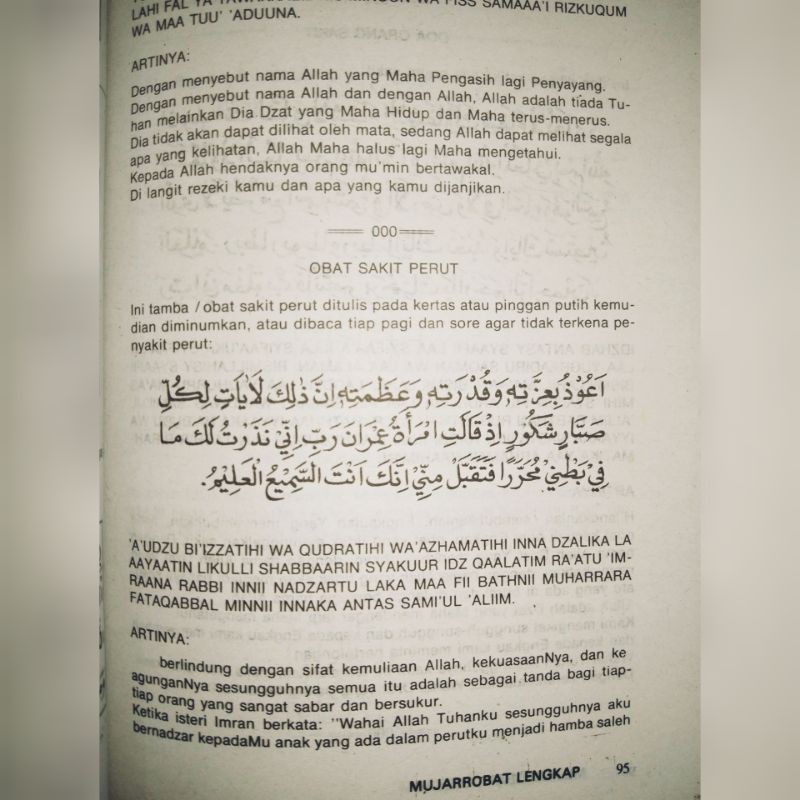 LAHI FAL YA WA FISS SAMAAA'I RIZKUQUM
WA MAA TUU' 'ADUUNA.
ARTINYA:
Dengan menyebut nama Allah yang Maha Pengasih lagi Penyayang.
Dengan menyebut nama Allah dan dengan Allah, Allah adalah tiada Tu-
han melainkan Dia Dzat yang Maha Hidup dan Maha terus-menerus.
Dia tidak akan dapat dilihat oleh mata, sedang Allah dapat melihat segala
apa yang kelihatan, Allah Maha halus lagi Maha mengetahui.
Kepada Allah hendaknya orang mu'min bertawakal.
Di langit rezeki kamu dan apa yang kamu dijanjikan.
000
OBAT SAKIT PERUT
Ini tamba / obat sakit perut ditulis pada kertas atau pinggan putih kemu-
dian diminumkan, atau dibaca tiap pagi dan sore agar tidak terkena pe-
nyakit perut:
اَعُوْذُ بِعِزَّتِهِ وَقُدْرَتِهِ وَعَظَمَتِهِ اِنَّ ذٰلِكَ لَاٰيَاتٍ لِكُلِّ
صَبَّارٍ شَكُوْرٍ اِذْ قَالَتِ امْرَأَةُ عِمْرَانَ رَبِّ اِنِّيْ نَذَرْتُ لَكَ مَا
فِيْ بَطْنِيْ مُحَرَّرًا فَتَقَبَّلْ مِنِّيْ اِنَّكَ اَنْتَ السَّمِيْعُ الْعَلِيْمُ.
'A'UDZU BI'IZZATIHI WA QUDRATIHI WA'AZHAMATIHI INNA DZALIKA LA
AAYAATIN LIKULLI SHABBAARIN SYAKUUR IDZ QAALATIM RA'ATU 'IM-
RAANA RABBI INNII NADZARTU LAKA MAA FII BATHNII MUHARRARA
FATAQABBAL MINNII INNAKA ANTAS SAMI'UL 'ALIIM.
ARTINYA:
berlindung dengan sifat kemuliaan Allah, kekuasaanNya, dan ke
agunganNya sesungguhnya semua itu adalah sebagai tanda bagi tiap-
tiap orang yang sangat sabar dan bersukur.
Ketika isteri Imran berkata: "Wahai Allah Tuhanku sesungguhnya aku
bernadzar kepadaMu anak yang ada dalam perutku menjadi hamba saleh
MUJARROBAT LENGKAP 95